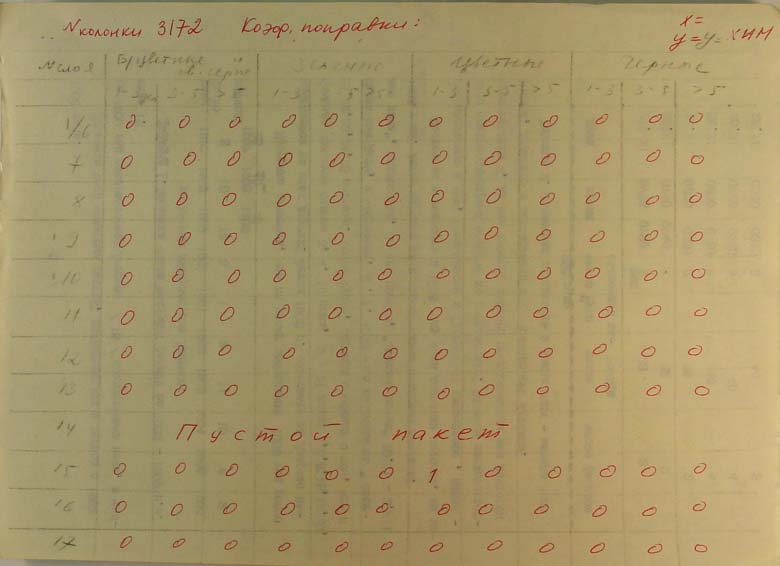 N колонки 3172 Коэф. поправки: x=
y=y= ХИН
N слоя Б/цветные и св. серые Зелёные Цветные Черные
1-3 3-5 >5 1-3 3-5 >5 1-3 3-5 >5 1-3 3-5 >5
1/6 0 0 0 0 0 0 0 0 0 0 0 0
7 0 0 0 0 0 0 0 0 0 0 0 0
8 0 0 0 0 0 0 0 0 0 0 0 0
9 0 0 0 0 0 0 0 0 0 0 0 0
10 0 0 0 0 0 0 0 0 0 0 0 0
11 0 0 0 0 0 0 0 0 0 0 0 0
12 0 0 0 0 0 0 0 0 0 0 0 0
13 0 0 0 0 0 0 0 0 0 0 0 0
14 Пустой пакет
15 0 0 0 0 0 0 1 0 0 0 0 0
16 0 0 0 0 0 0 0 0 0 0 0 0
17 0 0 0 0 0 0 0 0 0 0 0 0